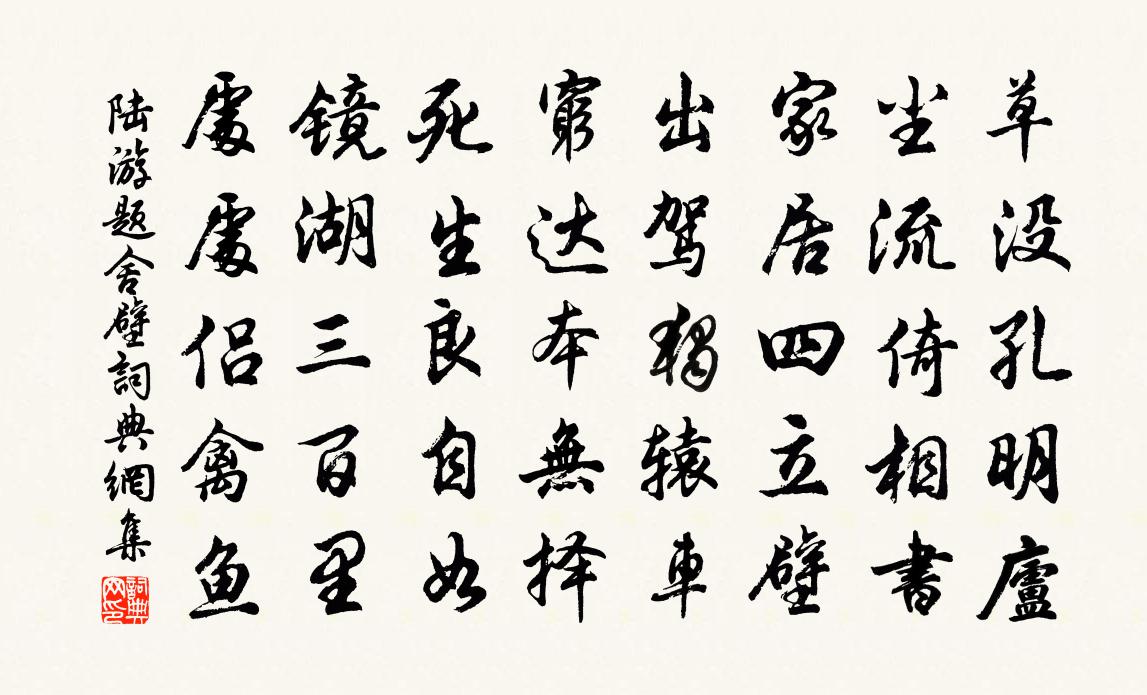 草没孔明廬
尘流倚相書
家居四立壁
出驾獨辕車
窮达本無择
死生良自如
镜湖三百里
處處侣禽鱼
陆游题舍壁詞典網集
詞典网印